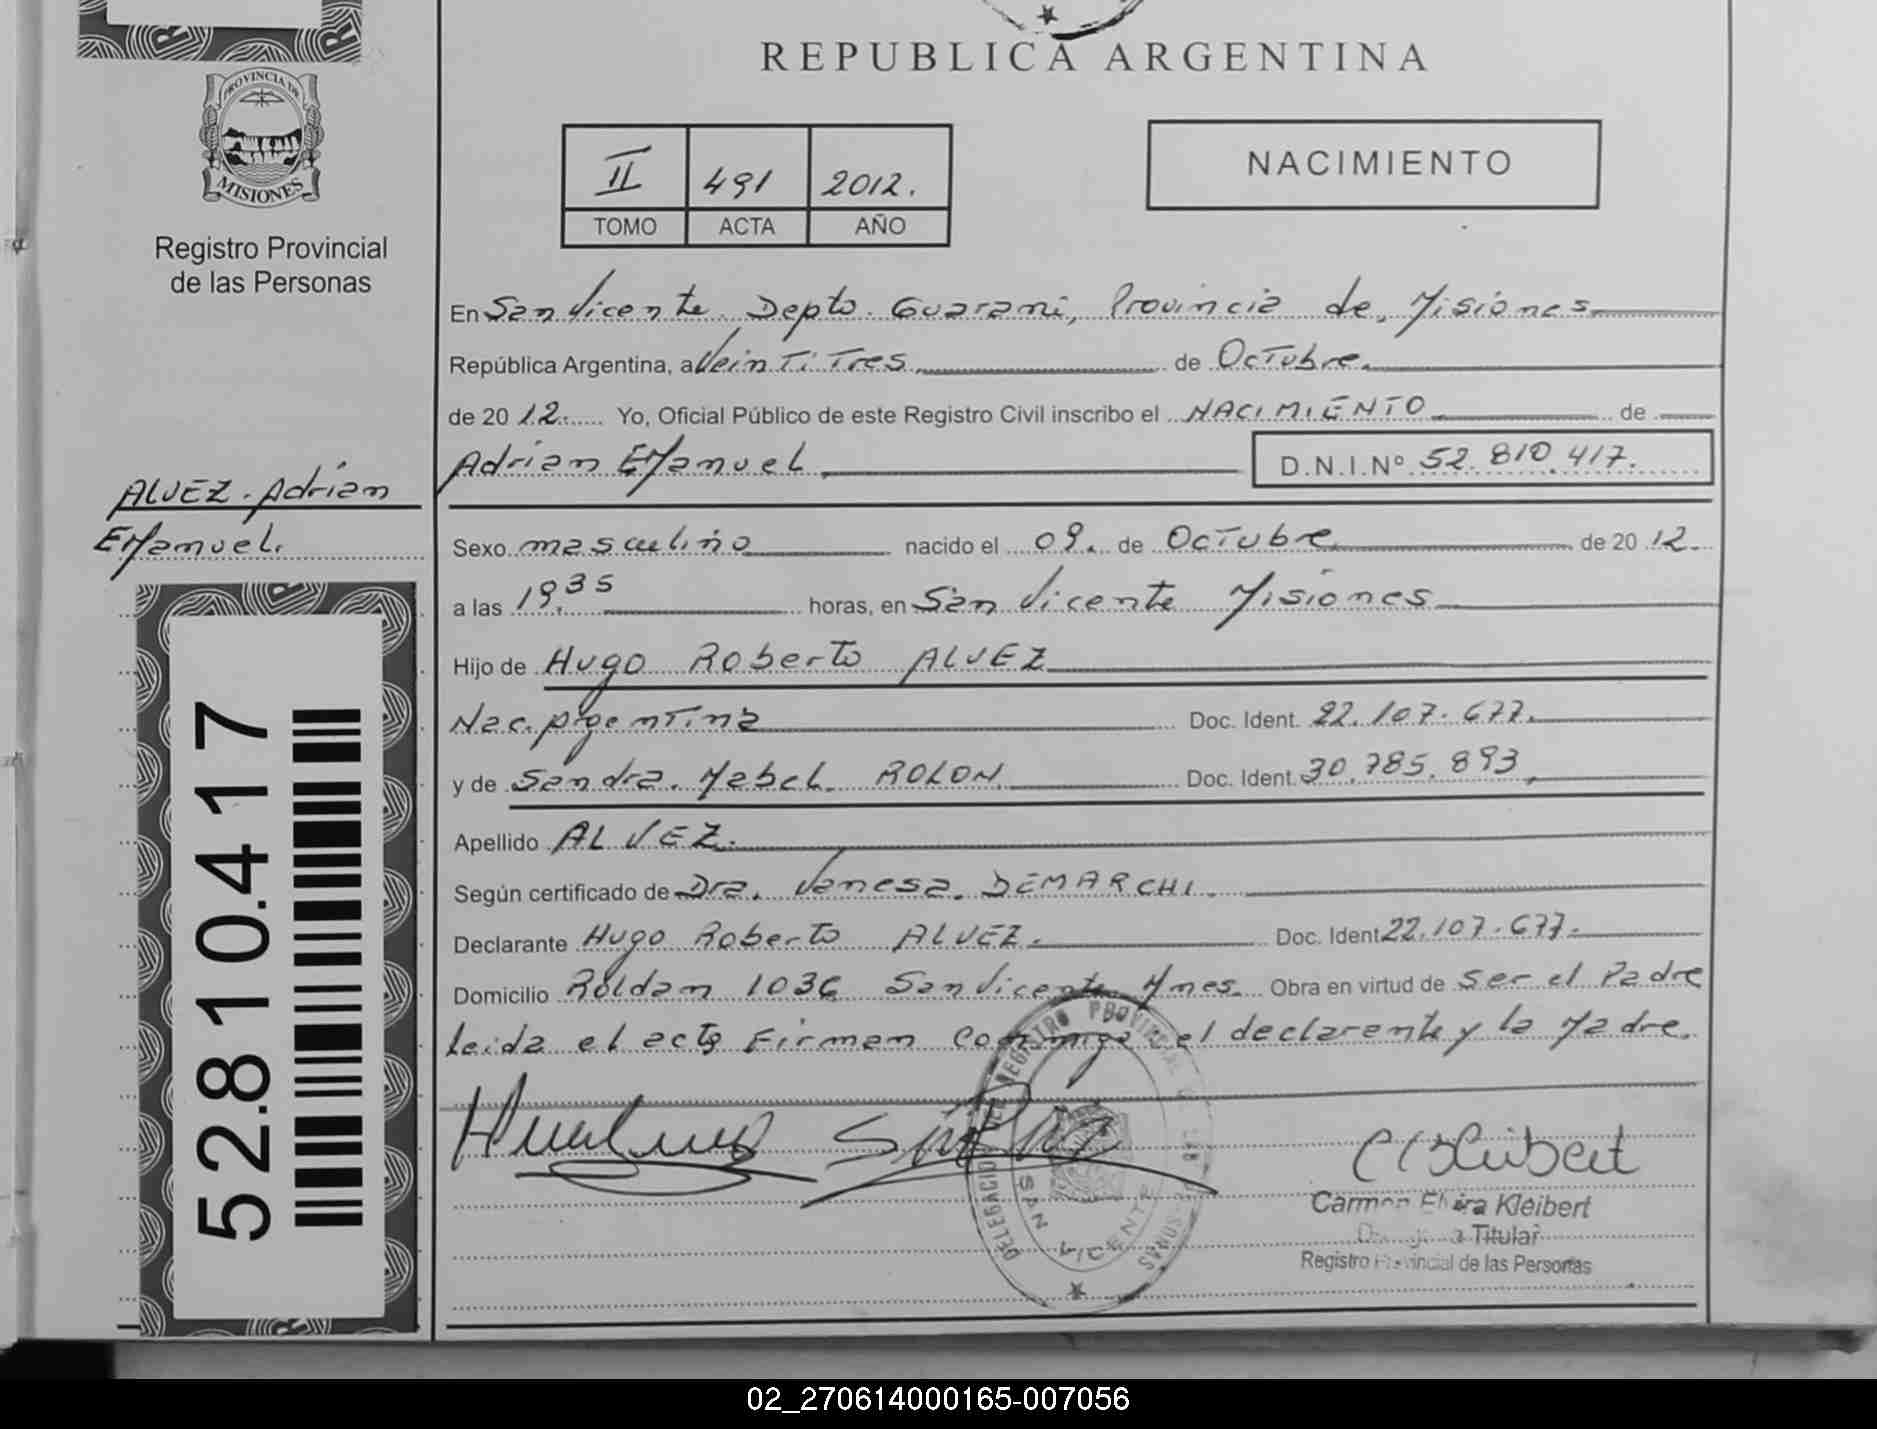 REPUBLICA ARGENTINA
PROVINCIA DE
MISIONES
Registro Provincial
de las Personas
II 491 2012.
TOMO ACTA AÑO
NACIMIENTO
En San Vicente Depto. Guarani, Provincia de Misiones
República Argentina, a Veintitres de Octubre
de 2012. Yo, Oficial Público de este Registro Civil inscribo el NACIMIENTO de
Adrian Emanuel D.N.I.Nº 52.810.417.
ALVEZ. Adrian
Emanuel.
Sexo masculino nacido el 09. de Octubre de 2012.
a las 19.35 horas, en San Vicente Misiones
Hijo de Hugo Roberto ALVEZ
Nac. Argentina Doc. Ident. 22.107.677.
y de Sandra Mabel ROLON Doc. Ident. 30.785.893
Apellido ALVEZ.
Según certificado de Dra. Vanesa DEMARCHI.
Declarante Hugo Roberto ALVEZ. Doc. Ident 22.107.677.
Domicilio Roldan 1036 San Vicente Mnes. Obra en virtud de ser el Padre
Leida el acta Firman Conmigo el declarante y la Madre.
52.810.417
DELEGACION DEL REGISTRO PROVINCIAL DE LAS PERSONAS
SAN VICENTE
Carmen Elvira Kleibert
Titular
Registro Provincial de las Personas
02_270614000165-007056